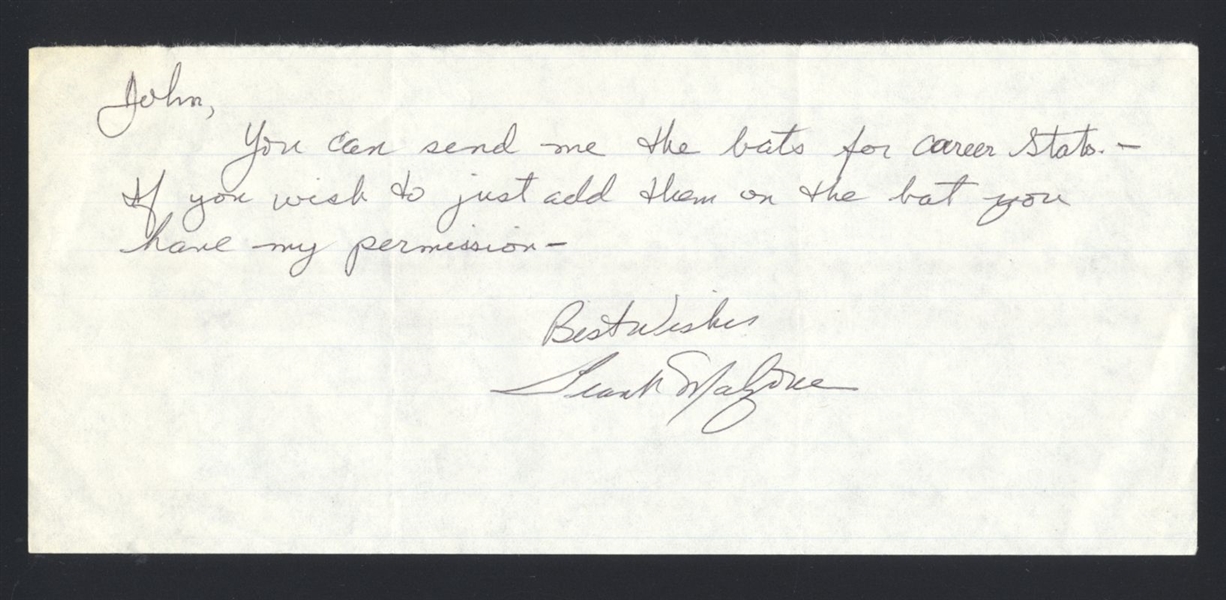 John,
You can send me the bats for career stats. –
If you wish to just add them on the bat you
have my permission –
Best Wishes
Frank Malzone